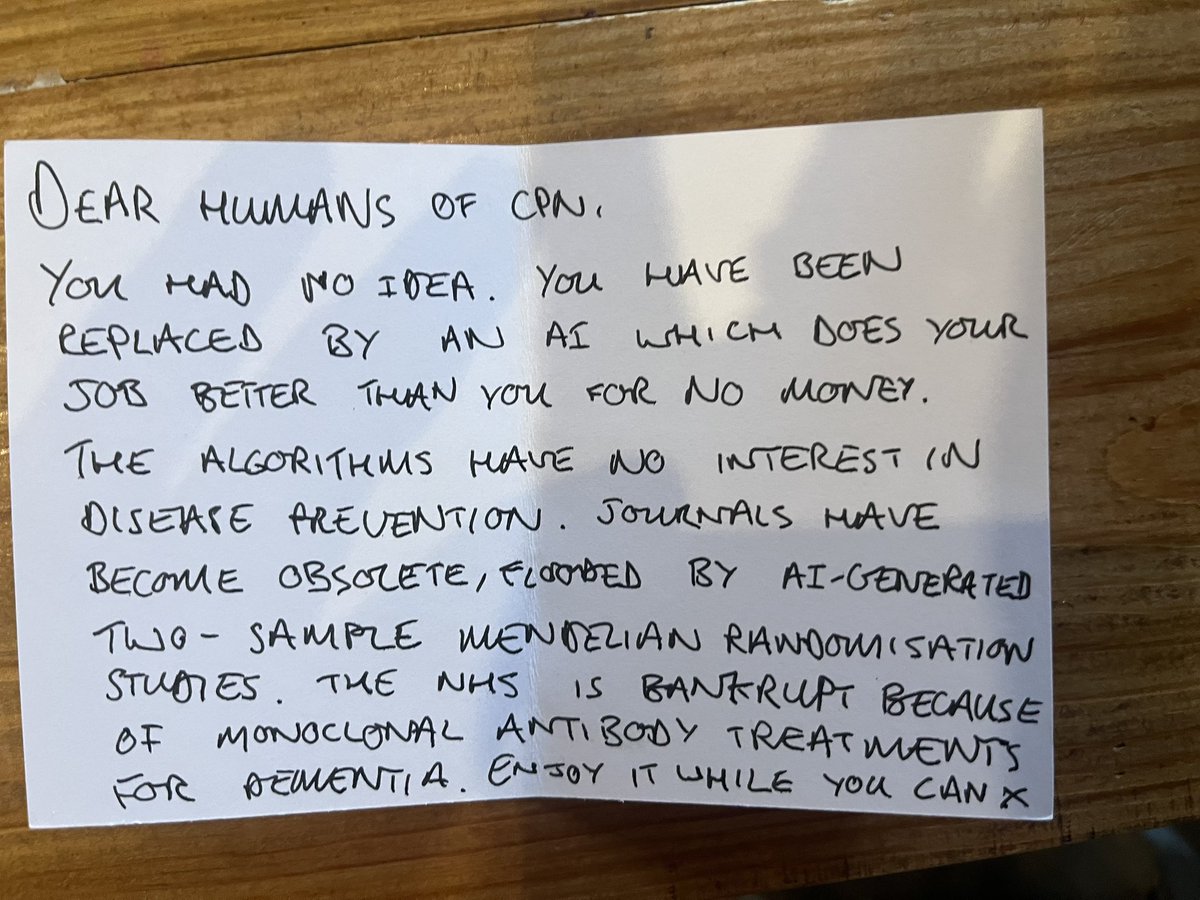 DEAR HUMANS OF CPN,
YOU HAD NO IDEA. YOU HAVE BEEN
REPLACED BY AN AI WHICH DOES YOUR
JOB BETTER THAN YOU FOR NO MONEY.
THE ALGORITHMS HAVE NO INTEREST IN
DISEASE PREVENTION. JOURNALS HAVE
BECOME OBSOLETE, FLOODED BY AI-GENERATED
TWO-SAMPLE MENDELIAN RANDOMISATION
STUDIES. THE NHS IS BANKRUPT BECAUSE
OF MONOCLONAL ANTIBODY TREATMENTS
FOR DEMENTIA. ENJOY IT WHILE YOU CAN X